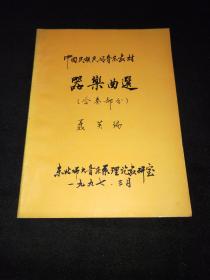 中国民族民间音乐教材
器樂曲選
(合奏部分)
聂英编
东北师大音乐系理论教研室
一九九七.三月